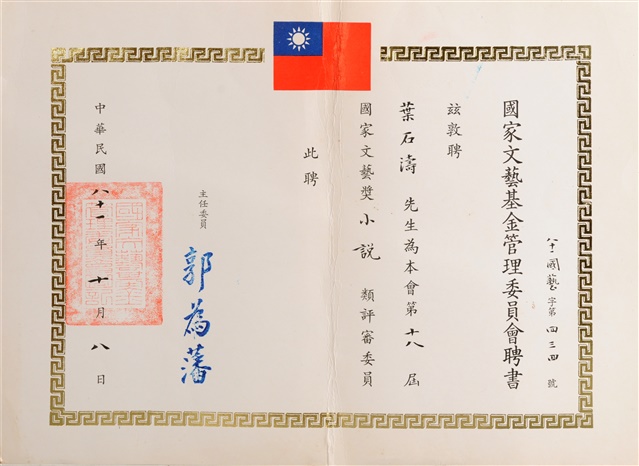 國家文藝基金管理委員會聘書
八十一國藝字第四三四號
茲敦聘
葉石濤先生為本會第十八屆
國家文藝獎小説類評審委員
此聘
主任委員
郭為藩
中華民國八十一年十月八日